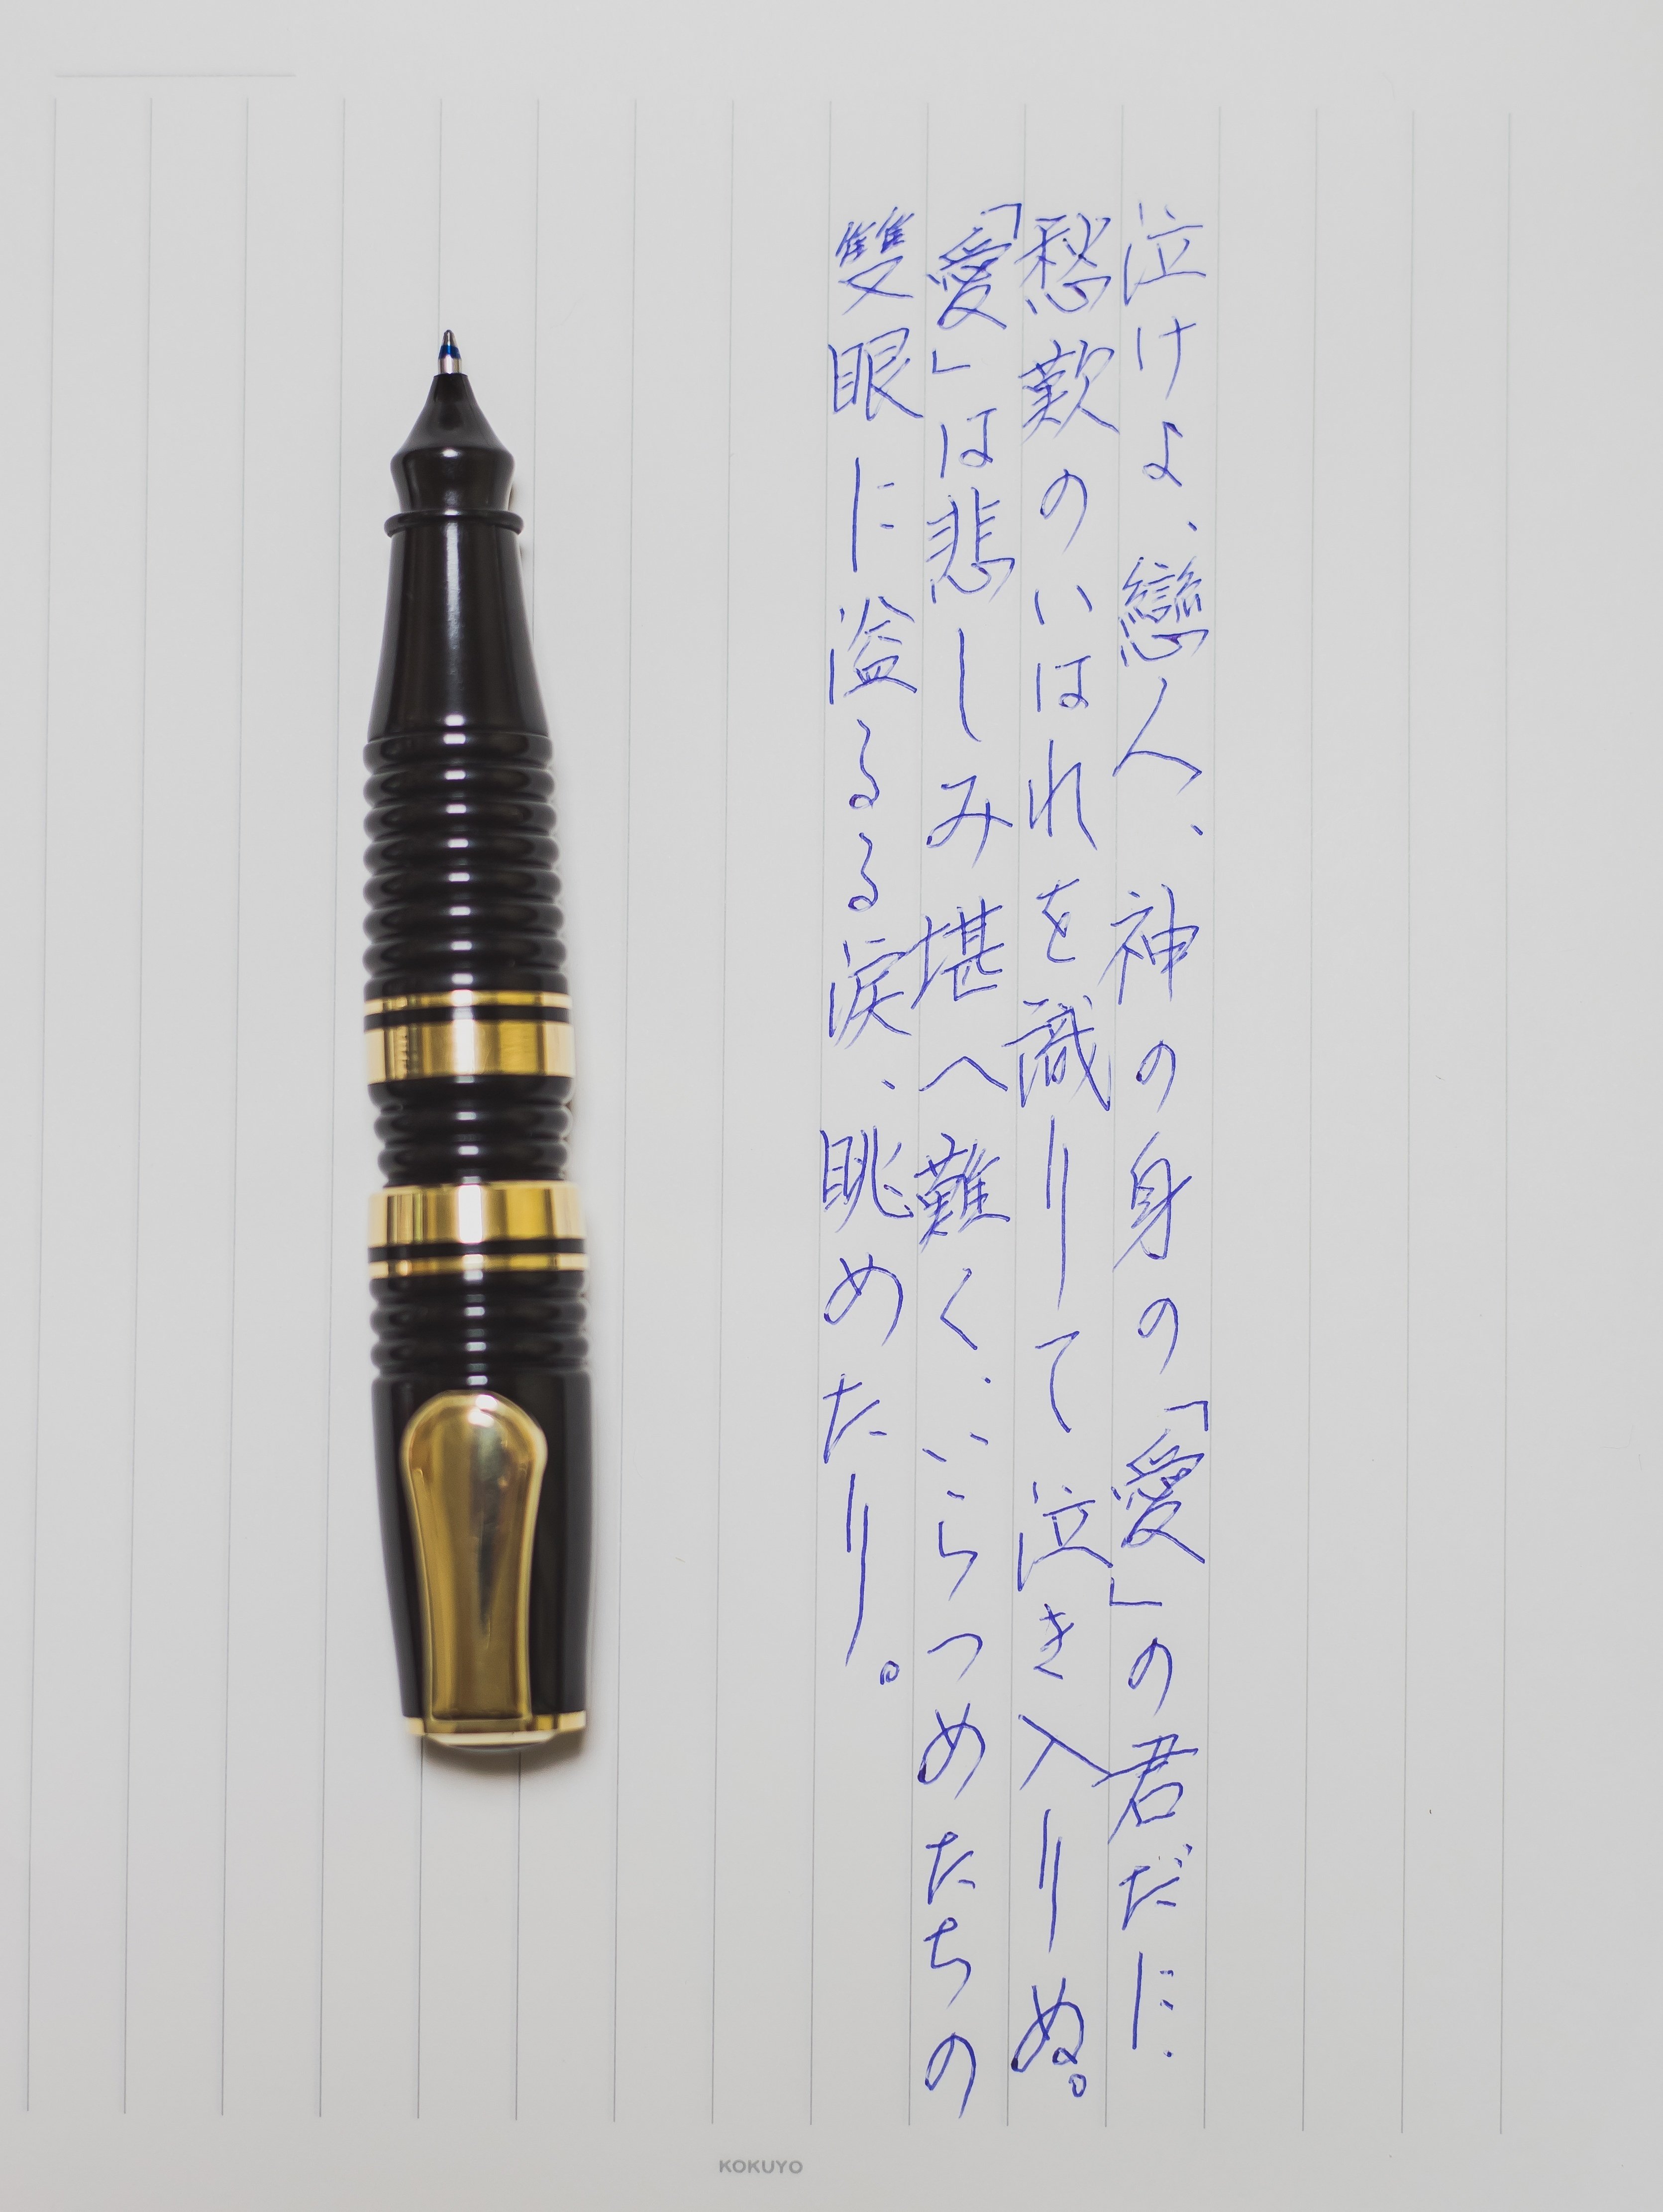 泣けよ、戀人、神の身の「愛」の君だに、
愁歎のいはれを識りて泣き入りぬ。
「愛」は悲しみ堪へ難く、いらつめたちの
雙眼に溢るる涙、眺めたり。
KOKUYO